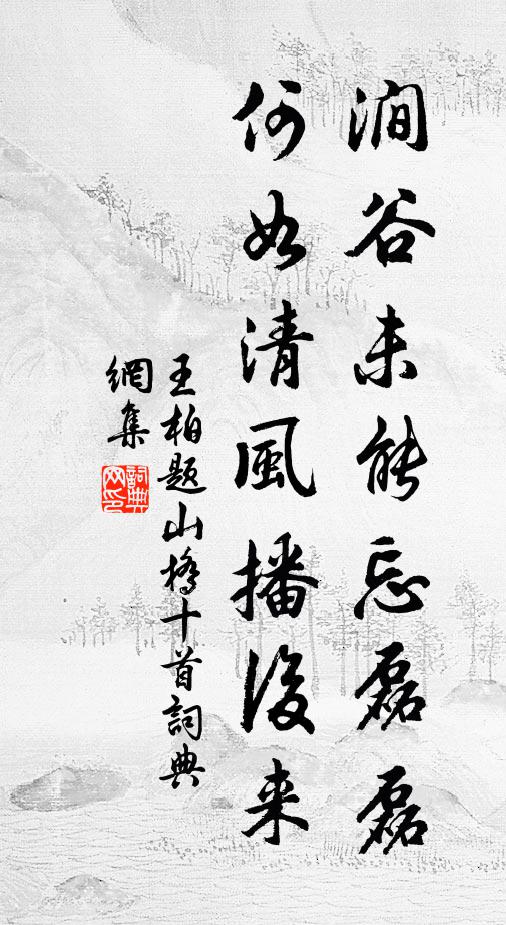 澗谷未能忘磊磊
何如清風播後来
王柏题山橋十首詞典
網集
詞典
网印